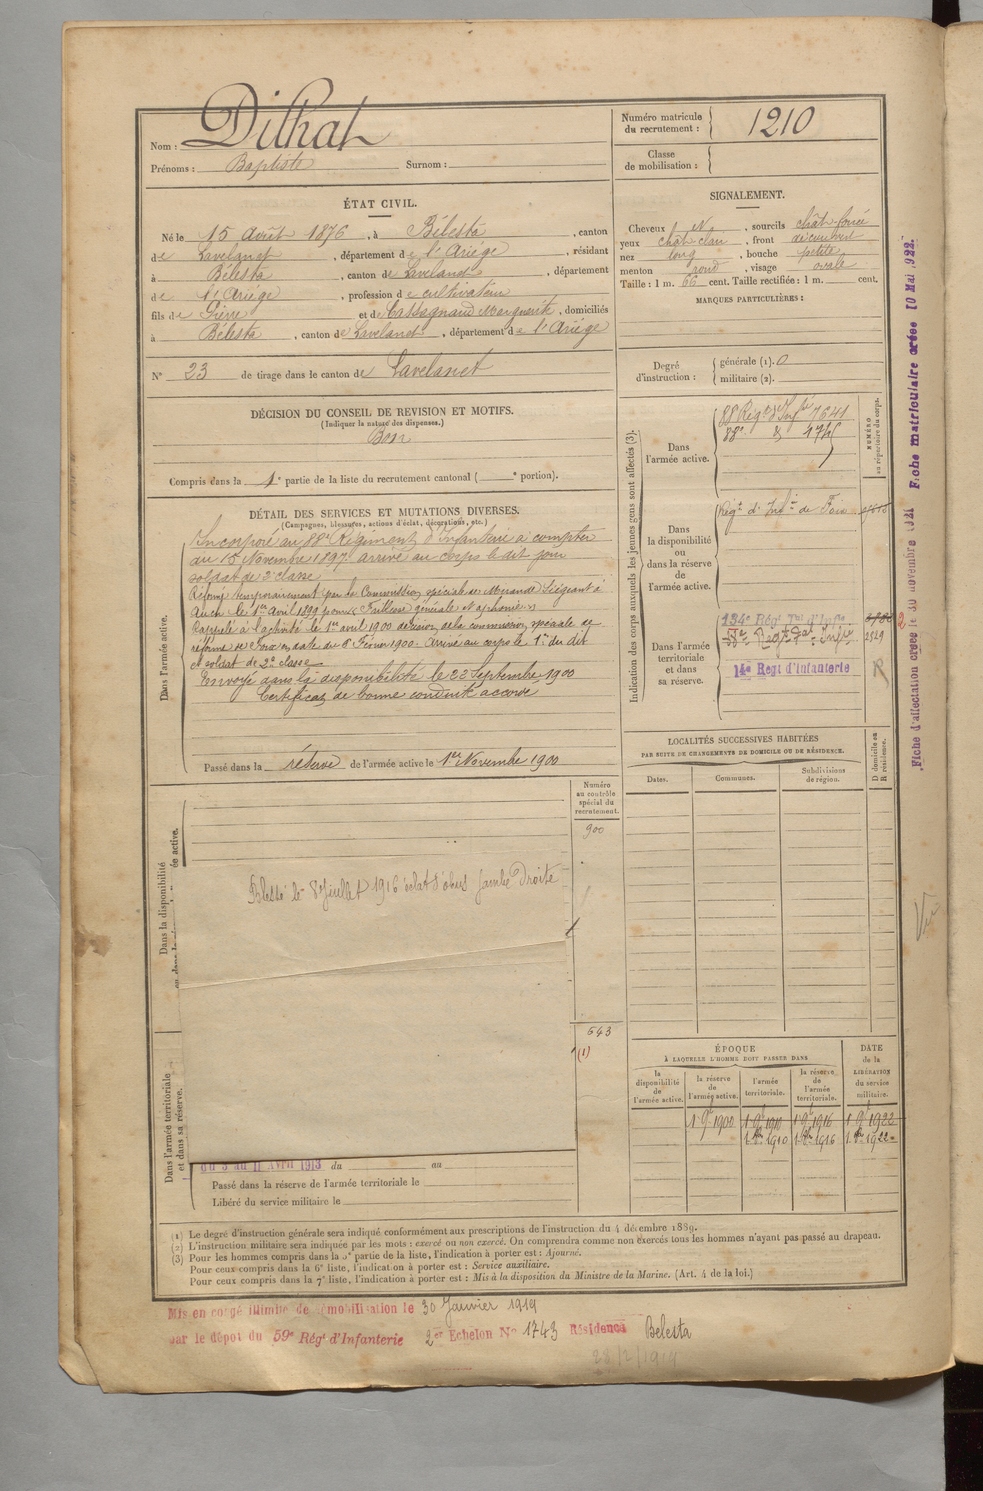 Nom : Dilhat
Prénoms : Baptiste Surnom :
Numéro matricule du recrutement : 1210
Classe de mobilisation :
ÉTAT CIVIL.
Né le 15 Août 1876, à Bélesta, canton
de Lavelanet, département de l'Ariège, résidant
à Bélesta, canton de Lavelanet, département
de l'Ariège, profession de cultivateur
fils de Pierre et de Cassagnaud Marguerite, domiciliés
à Bélesta, canton de Lavelanet, département de l'Ariège
N° 23 de tirage dans le canton de Lavelanet
SIGNALEMENT.
Cheveux N, sourcils chât-foncé
yeux chât clair, front découvert
nez long, bouche petite
menton rond, visage ovale
Taille : 1 m. 66 cent. Taille rectifiée : 1 m. cent.
MARQUES PARTICULIÈRES :
Degré d'instruction : générale (1). 0
militaire (2).
DÉCISION DU CONSEIL DE REVISION ET MOTIFS.
(Indiquer la nature des dispenses.)
Bon
Compris dans la 1e partie de la liste du recrutement cantonal ( e portion).
DÉTAIL DES SERVICES ET MUTATIONS DIVERSES.
(Campagnes, blessures, actions d'éclat, décorations, etc.)
Dans l'armée active.
Incorporé au 88e Régiment d'Infanterie à compter
du 15 Novembre 1897 arrivé au corps le dit jour
soldat de 2e classe
Réformé temporairement par la Commission spéciale de Mirande Siégeant à
Auch le 1er Avril 1899 pour « Faiblesse générale et aphonie »
Rappelé à l'activité le 1er avril 1900 décision de la commission spéciale de
réforme de Foix en date du 8 Février 1900. Arrivé au corps le 1er du dit
et soldat de 2e classe
Envoyé dans la disponibilité le 22 Septembre 1900
Certificat de bonne conduite accordé
Passé dans la réserve de l'armée active le 1er Novembre 1900
Indication des corps auxquels les jeunes gens sont affectés (3).
NUMÉRO au répertoire du corps.
Dans l'armée active.
88 Régt d'Infie 7641
88e d° 1745
Dans la disponibilité ou dans la réserve de l'armée active.
Régt d'Infie de Foix
Dans l'armée territoriale et dans sa réserve.
134e Régt Tal d'Infie
Régt Tal Infie 2529
14e Regt d'Infanterie
LOCALITÉS SUCCESSIVES HABITÉES
PAR SUITE DE CHANGEMENTS DE DOMICILE OU DE RÉSIDENCE.
Dates. Communes. Subdivisions de région. D domicile ou R résidence.
Numéro au contrôle spécial du recrutement.
900
Dans la disponibilité
Blessé le 8 Juillet 1916 éclat d'obus jambe Droite
643
(1)
Dans l'armée territoriale et dans sa réserve.
du 3 au 11 Avril 1913 du au
Passé dans la réserve de l'armée territoriale le
Libéré du service militaire le
ÉPOQUE
À LAQUELLE L'HOMME DOIT PASSER DANS
la disponibilité de l'armée active. la réserve de l'armée active. l'armée territoriale. la réserve de l'armée territoriale.
DATE de la LIBÉRATION du service militaire.
1 9bre 1900 1 9bre 1910 1 9bre 1916 1 9bre 1922
1. 8bre 1910 1. 8bre 1916 1. 8bre 1922
(1) Le degré d'instruction générale sera indiqué conformément aux prescriptions de l'instruction du 4 décembre 1889.
(2) L'instruction militaire sera indiquée par les mots : exercé ou non exercé. On comprendra comme non exercés tous les hommes n'ayant pas passé au drapeau.
(3) Pour les hommes compris dans la 5e partie de la liste, l'indication à porter est : Ajourné.
Pour ceux compris dans la 6e liste, l'indication à porter est : Service auxiliaire.
Pour ceux compris dans la 7e liste, l'indication à porter est : Mis à la disposition du Ministre de la Marine. (Art. 4 de la loi.)
Mis en congé illimité de démobilisation le 30 Janvier 1919
par le dépot du 59e Régt d'Infanterie 2er Echelon N° 1743 Résidence Belesta
28/2/1919
Fiche d'affectation créée le 30 novembre 1921 Fiche matriculaire créée 10 Mai 1922.
Vu